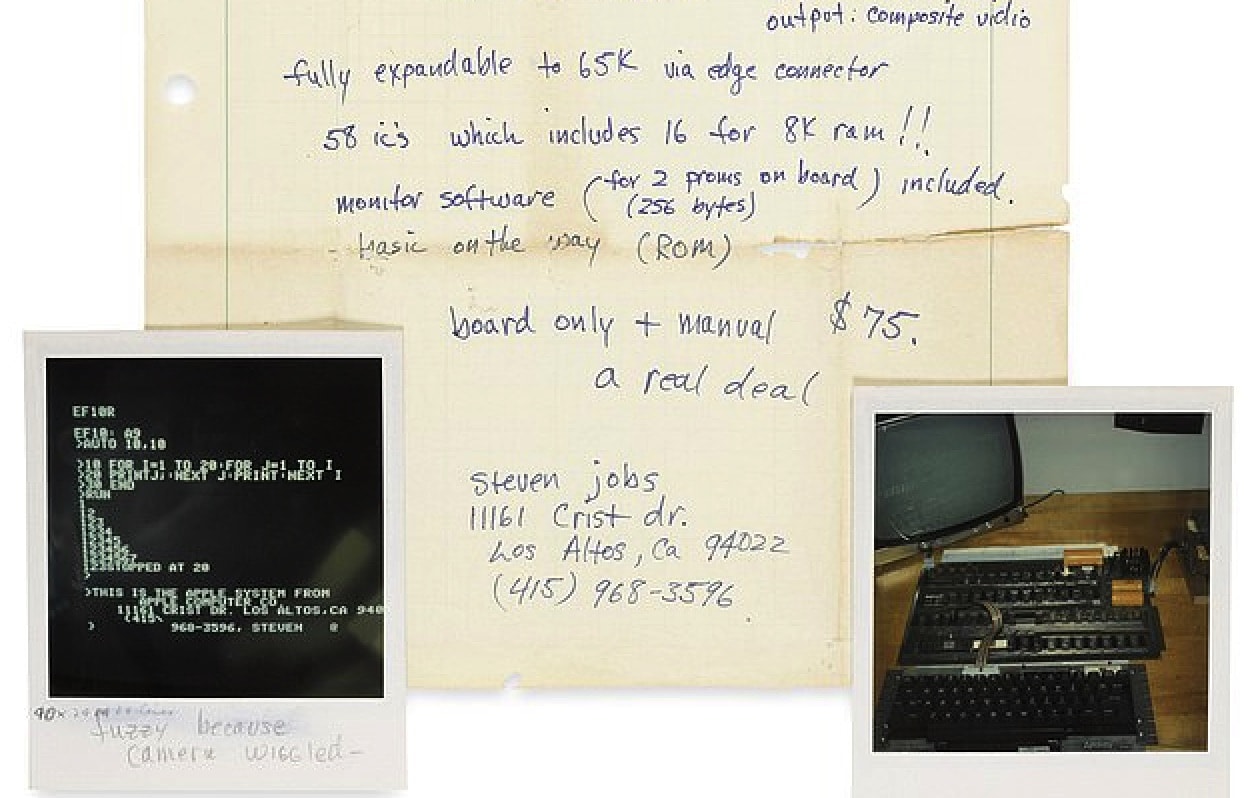 output: composite vidio
fully expandable to 65K via edge connector
58 ic's which includes 16 for 8K ram!!
monitor software (for 2 proms on board) included.
(256 bytes)
- basic on the way (ROM)
board only + manual $75.
a real deal
steven jobs
11161 Crist dr.
Los Altos, Ca 94022
(415) 968-3596
EF10R
EF10: A9
>AUTO 10,10
>10 FOR I=1 TO 20:FOR J=1 TO I
>20 PRINTJ;:NEXT J:PRINT:NEXT I
>30 END
>RUN
STOPPED AT 20
>
>THIS IS THE APPLE SYSTEM FROM
APPLE COMPUTER CO
11161 CRIST DR. LOS ALTOS,CA 940
(415\
> 968-3596, STEVEN @
fuzzy because
camera wiggled-